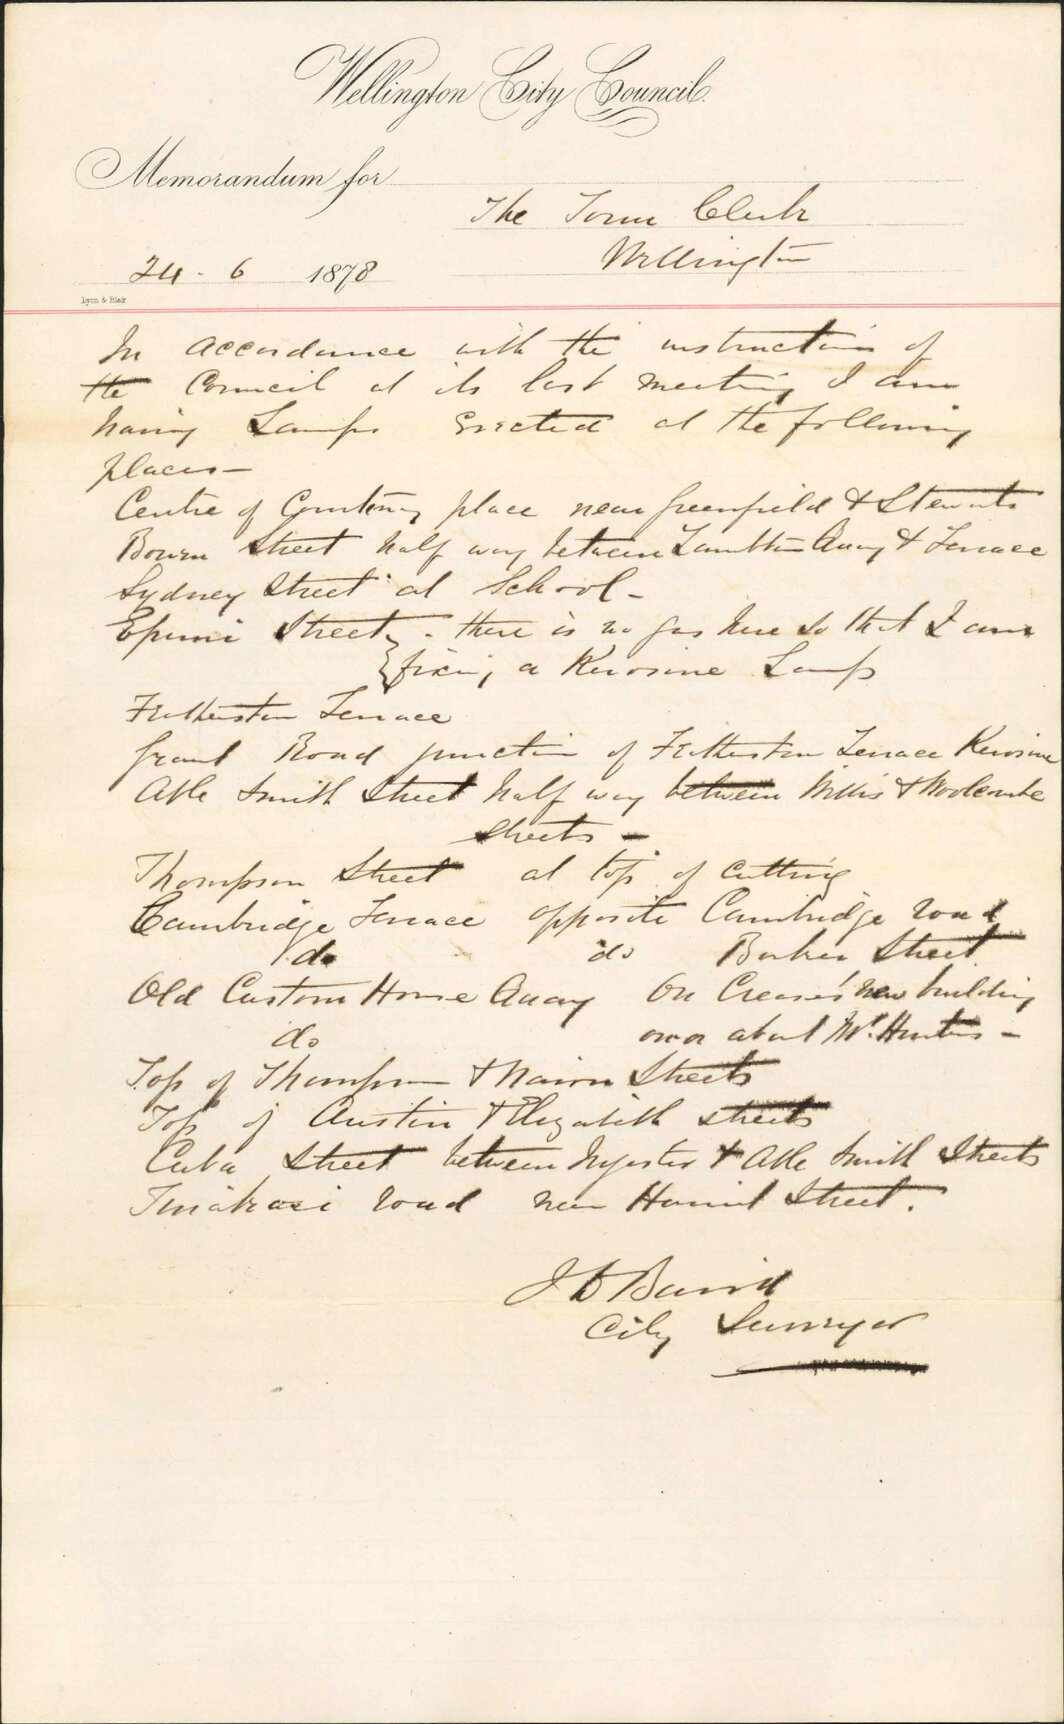 Wellington City Council.
Memorandum for
The Town Clerk
Wellington
24 - 6 1878
Lyon & Blair
In accordance with the instructions of
the Council at its last meeting I am
having Lamps Erected at the following
places -
Centre of Courtenay place near Greenfield & Stewarts
Bowen Street half way between Lambton Quay & Terrace
Sydney Street at School -
Epuni Street - there is no gas here so that I am
fixing a Kerosine Lamp
Fetherston Terrace
Grant Road junction of Fetherston Terrace Kerosine
Able Smith Street half way between Willis & Woolcombe
Streets -
Thompson Street at top of cutting
Cambridge Terrace opposite Cambridge road
do do Barker Street
Old Custom House Quay On Crease's new building
do on or about Mr. Hunters -
Top of Thompson & Nairn Streets
Top of Austin & Elizabeth streets
Cuba Street between Ingestre & Able Smith Streets
Tinakori road near Harriet Street.
J D Baird
City Surveyor